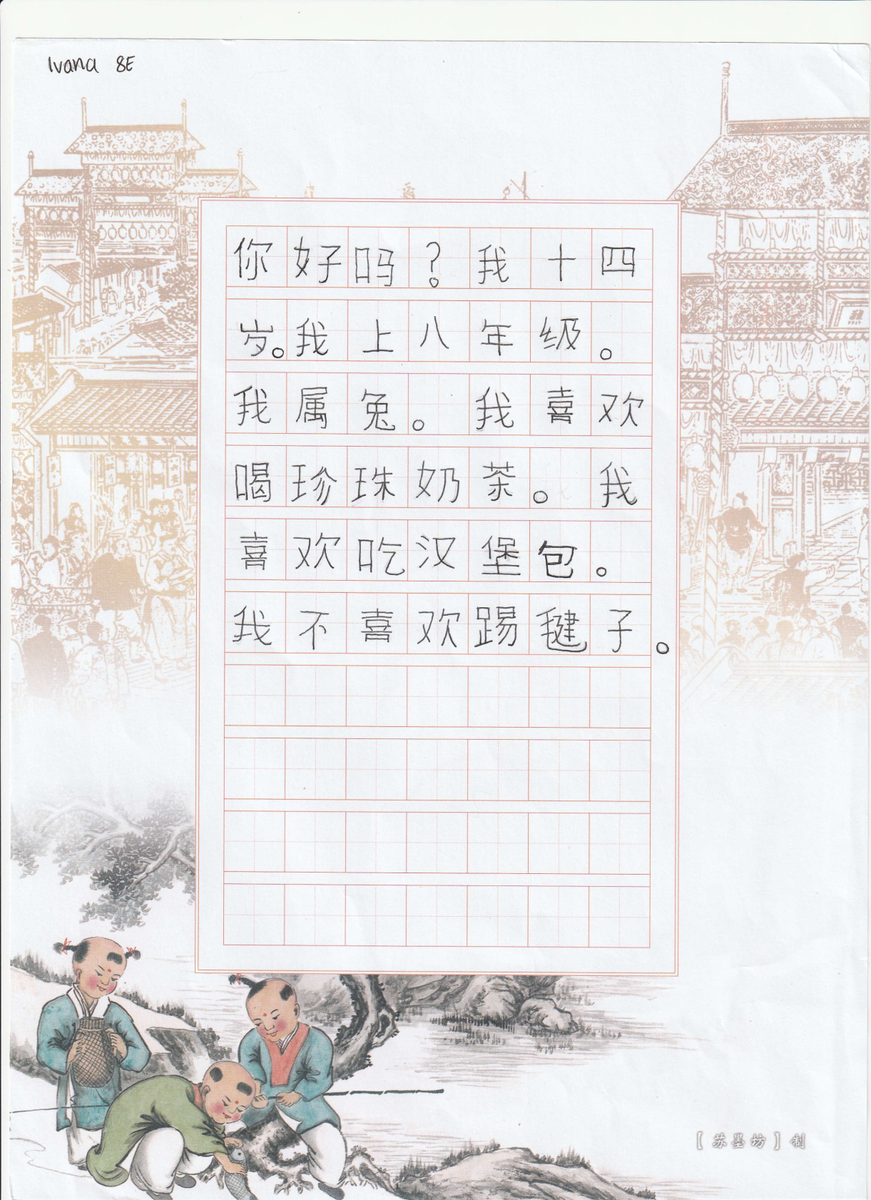 Ivana 8E
你好吗？我十四
岁。我上八年级。
我属兔。我喜欢
喝珍珠奶茶。我
喜欢吃汉堡包。
我不喜欢踢毽子。
［苏墨坊］制